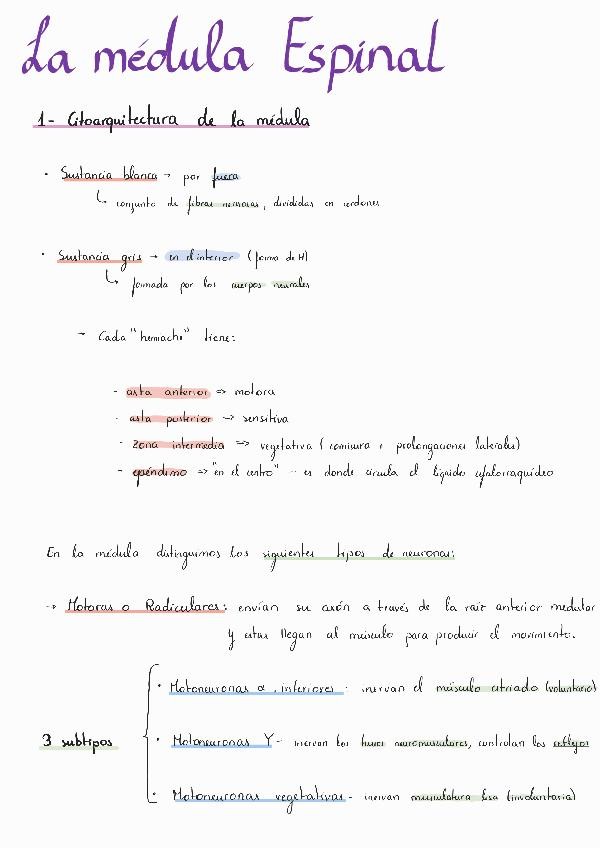 La médula Espinal
1- Citoarquitectura de la médula
· Sustancia blanca → por fuera
↳ conjunto de fibras nerviosas, divididas en cordones
· Sustancia gris → en el interior (forma de H)
↳ formada por los cuerpos neurales
→ Cada "hemiacho" tiene:
- asta anterior => motora
- asta posterior => sensitiva
- zona intermedia => vegetativa (comisura + prolongaciones laterales)
- epéndimo => "en el centro" - es donde circula el líquido cefalorraquídeo
En la médula distinguimos los siguientes tipos de neuronas:
→ Motoras o Radiculares: envían su axón a través de la raiz anterior medular
y estas llegan al músculo para producir el movimiento.
3 subtipos
· Motoneuronas α inferiores - inervan el músculo estriado (voluntario)
· Motoneuronas γ - inervan los husos neuromusculares, controlan los reflejos
· Motoneuronas vegetativas - inervan musculatura lisa (involuntaria)